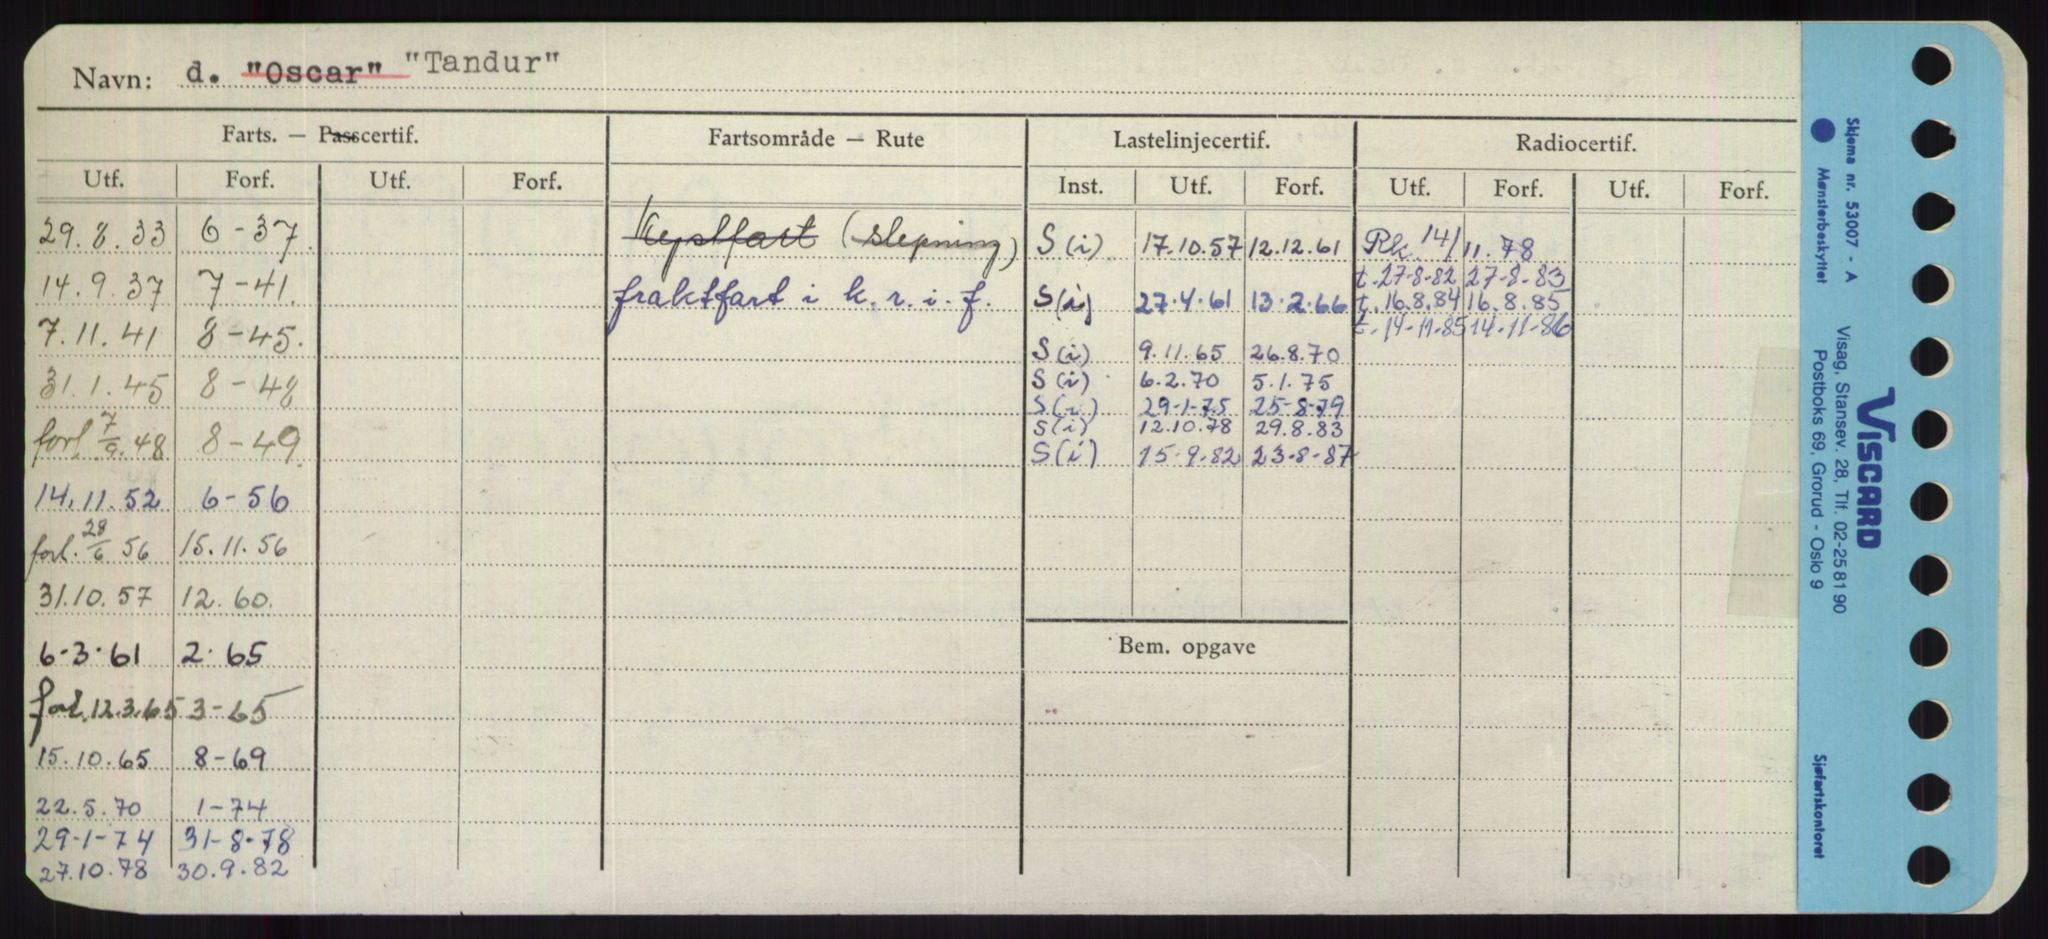 Navn: d. "Oscar" "Tandur"
Farts. — Passcertif. Fartsområde — Rute Lastelinjecertif. Radiocertif.
Utf. Forf. Utf. Forf. Inst. Utf. Forf. Utf. Forf. Utf. Forf.
29.8.33 6-37. Kystfart (slepning) S(i) 17.10.57 12.12.61 Rk. 14/11.78
t. 27-8-82 27-8-83
14.9.37 7-41. fraktfart i k.r.i.f. S(i) 27.4.61 13.2.66 t. 16.8.84 16.8.85
7.11.41 8-45. t. 14-11-85 14-11-86
S(i) 9.11.65 26.8.70
31.1.45 8-48 S(i) 6.2.70 5.1.75
S(i) 29-1-75 25-8-79
forl. 7/9.48 8-49. S(i) 12.10.78 29.8.83
S(i) 15-9-82 23-8-87
14.11.52 6-56
forl. 28/6 56 15.11.56
31.10.57 12.60.
Bem. opgave
6-3-61 2-65
forl. 12.3.65 3-65
15.10.65 8-69
22.5.70 1-74
29-1-74 31-8-78
27.10.78 30.9.82
Skjema nr. 53007 - A
Mønsterbeskyttet
Visag, Stansev. 28, Tlf. 02-25 81 90
Postboks 69, Grorud - Oslo 9
VISCARD
Sjøfartskontoret